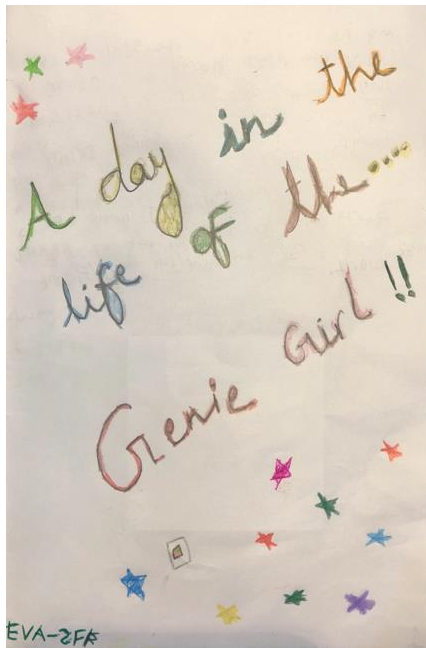 A day in the
life of the....
Genie Girl!!
EVA-2FR